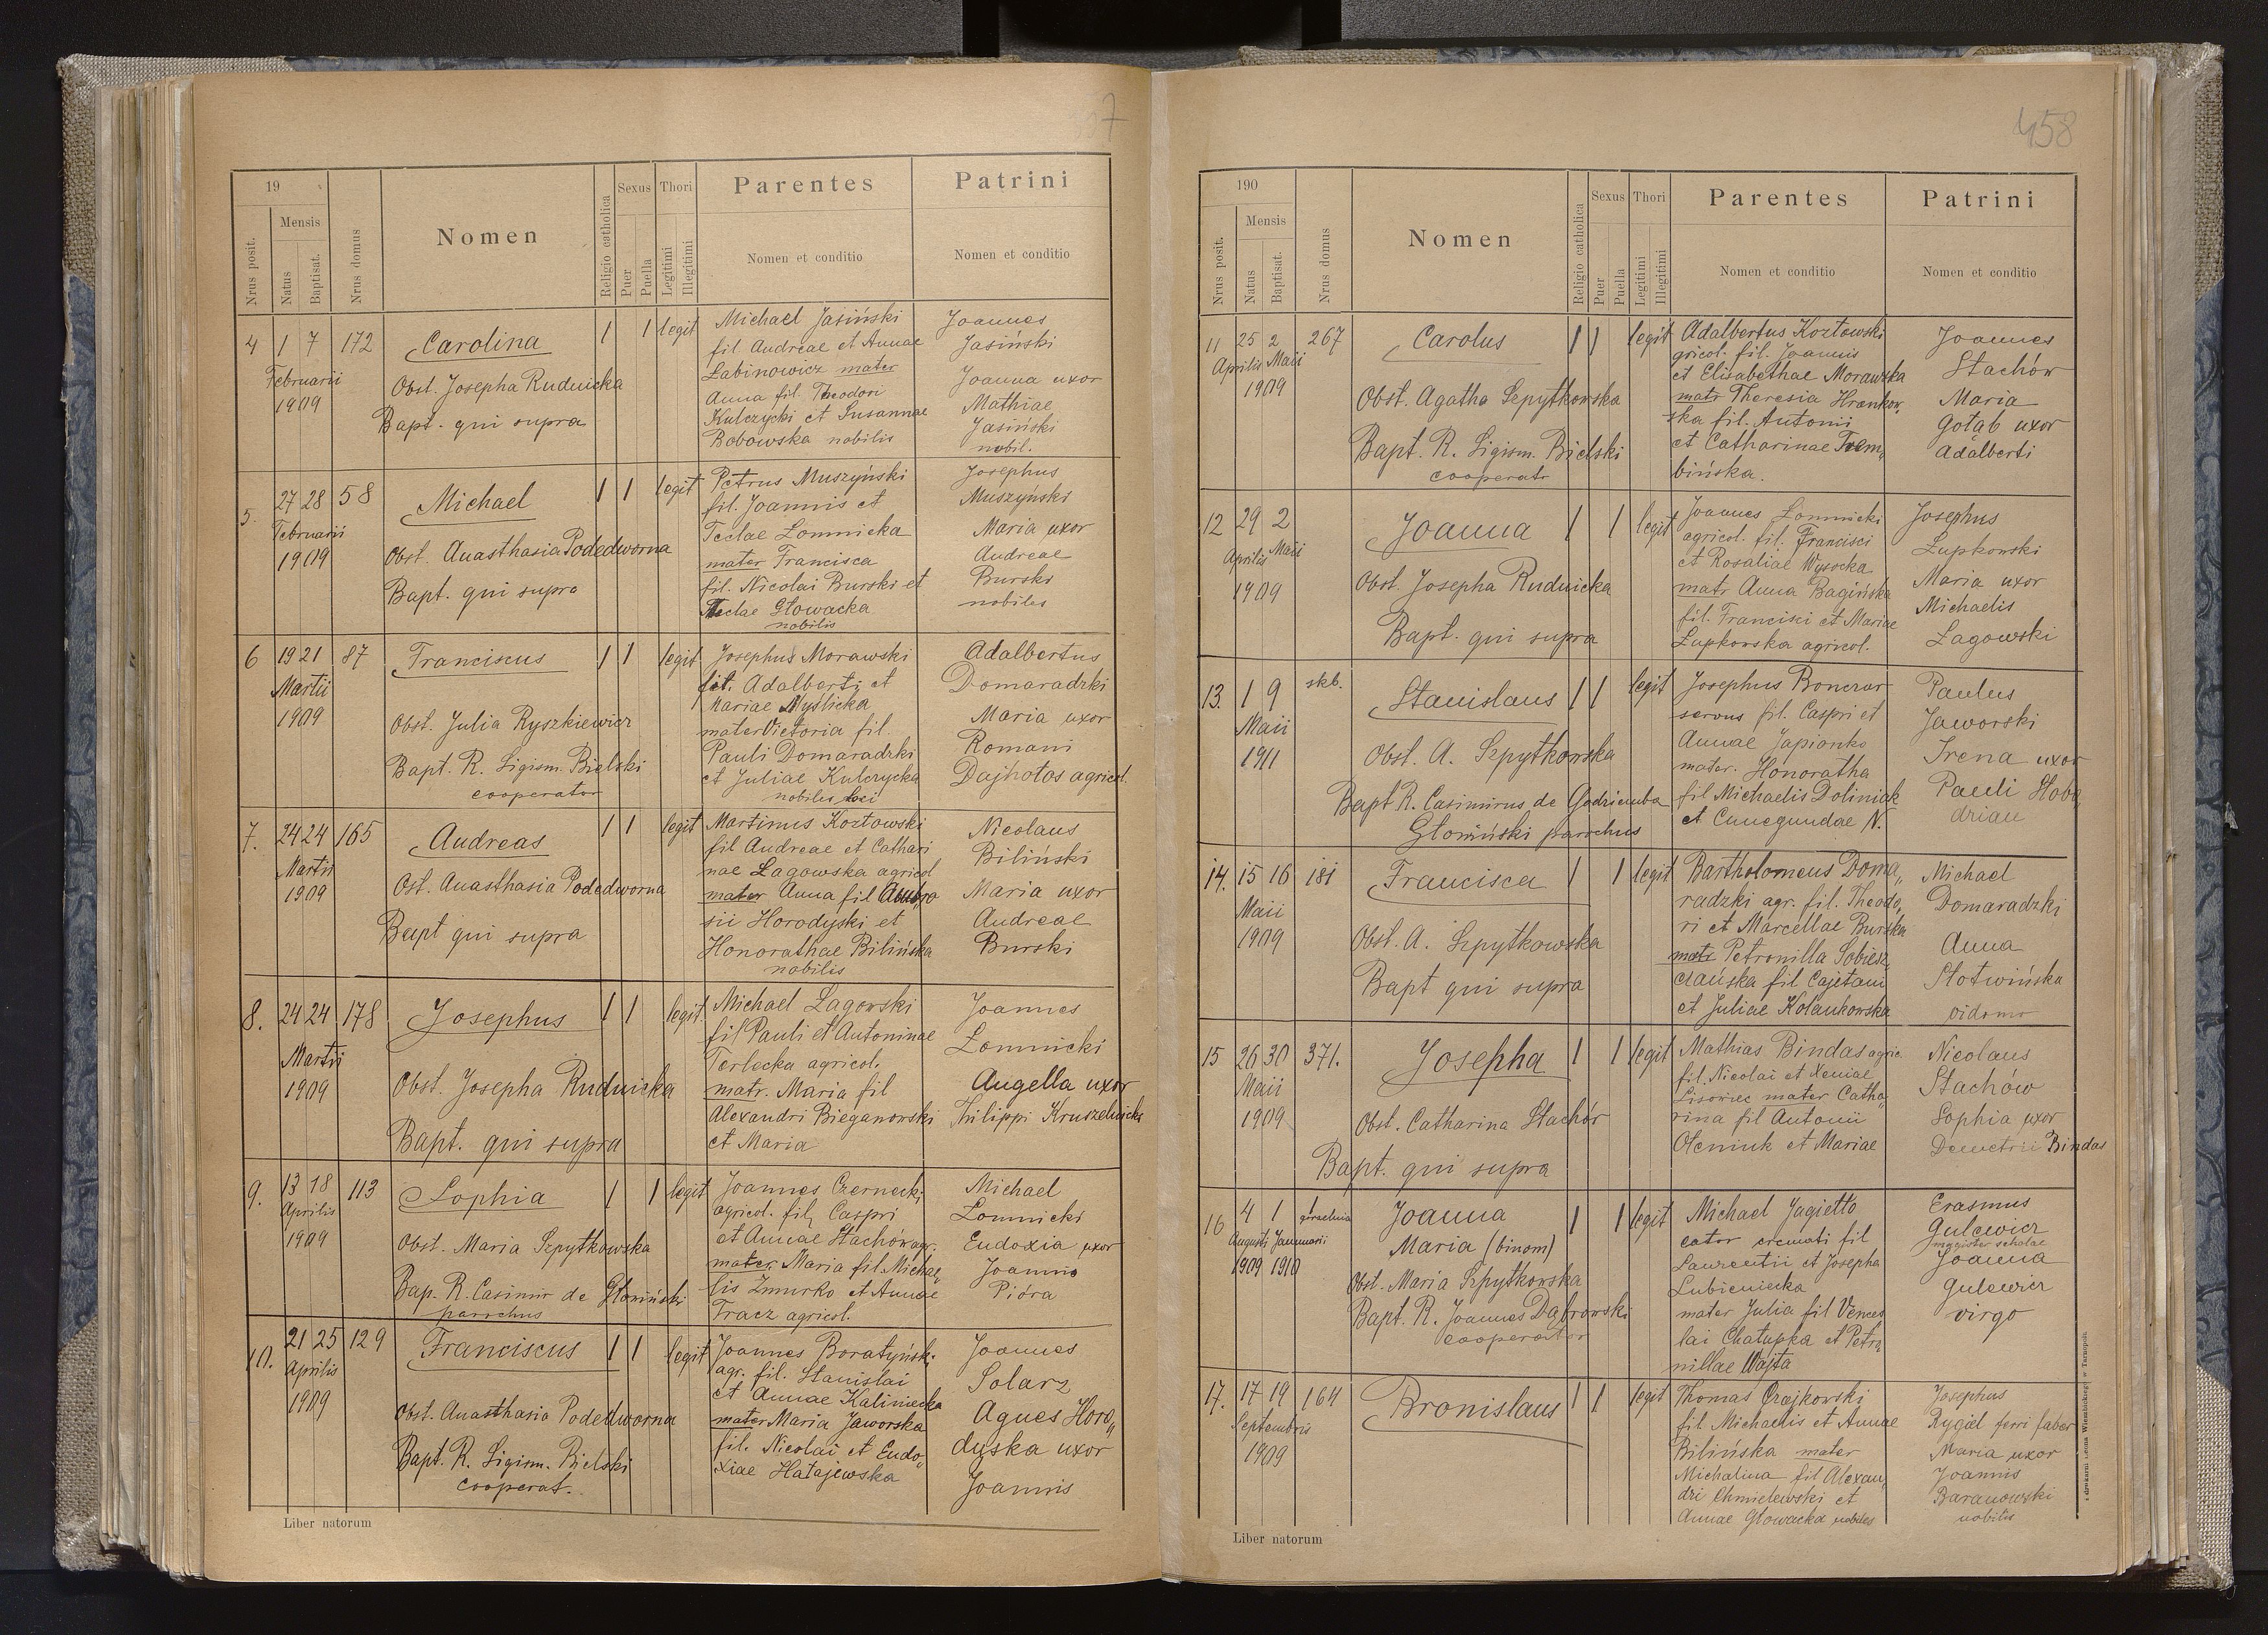 7
19
Nrus posit.
Mensis
Natus
Baptisat.
Nrus domus
Nomen
Religio catholica
Sexus
Puer
Puella
Thori
Legitimi
Illegitimi
Parentes
Nomen et conditio
Patrini
Nomen et conditio
4 1 7 172
Februarii
1909
Carolina
Obst. Josepha Rudnicka
Bapt. qui supra
1 1 legit
Michael Jasiński
fil Andreae et Annae
Łabinowicz mater
Anna fil. Theodori
Kulczycki et Susannae
Bobowska nobilis
Joannes
Jasiński
Joanna uxor
Mathiae
Jasiński
nobil.
5. 27 28 58
Februarii
1909
Michael
Obst. Anasthasia Podedworna
Bapt. qui supra
1 1 legit
Petrus Muszyński
fil. Joannis et
Teclae Łomnicka
mater Francisca
fil. Nicolai Burski et
Teclae Głowacka
nobilis
Josephus
Muszyński
Maria uxor
Andreae
Burski
nobiles
6 19 21 87
Martii
1909
Franciscus
Obst. Julia Ryszkiewicz
Bapt. R. Sigism. Bielski
cooperator
1 1 legit
Josephus Morawski
fil. Adalberti et
Mariae Myslicka
mater Victoria fil.
Pauli Domaradzki
et Juliae Kulczycka
nobiles loci
Adalbertus
Domaradzki
Maria uxor
Romani
Dajhotos agricol.
7. 24 24 165
Martii
1909
Andreas
Ost. Anasthasia Podedworna
Bapt qui supra
1 1 legit
Martinus Kozłowski
fil Andreae et Cathari
nae Łagowska agricol
mater Anna fil Ambro
sii Horodyski et
Honorathae Bilińska
nobilis
Nicolaus
Biliński
Maria uxor
Andreae
Burski
8. 24 24 178
Martii
1909
Josephus
Obst. Josepha Rudnicka
Bapt. qui supra
1 1 legit
Michael Łagowski
fil Pauli et Antoninae
Terlecka agricol.
matr. Maria fil
Alexandri Bieganowski
et Maria
Joannes
Łomnicki
Angella uxor
Philippi Kruszelnicki
9. 13 18 113
Aprilis
1909
Sophia
Obst. Maria Szpytkowska
Bap. R. Casimir de Głowiński
parochus
1 1 legit
Joannes Czernecki
agricol. fil, Caspri
et Annae Stachów agr.
mater Maria fil Michae„
lis Żmurko et Annae
Tracz agricol.
Michael
Łomnicki
Eudoxia uxor
Joannis
Pióra
10. 21 25 129
Aprilis
1909
Franciscus
Obst. Anasthasia Podedworna
Bapt. R. Sigism. Bielski
cooperat.
1 1 legit
Joannes Boratyński
agr. fil. Stanislai
et Annae Kaliniecka
mater Maria Jaworska
fil. Nicolai et Eudo„
xiae Hatajewska
Joannes
Solarz
Agnes Horo„
dyska uxor
Joannis
Liber natorum
458
190
Nrus posit.
Mensis
Natus
Baptisat.
Nrus domus
Nomen
Religio catholica
Sexus
Puer
Puella
Thori
Legitimi
Illegitimi
Parentes
Nomen et conditio
Patrini
Nomen et conditio
11 25 2 267
Aprilis Maii
1909
Carolus
Obst. Agatha Szpytkowska
Bapt. R. Sigism. Bielski
cooperatr
1 1 legit
Adalbertus Kozłowski
gricol. fil. Joannis
et Elisabethae Morawska
matr Theresia Hrenkow„
ska fil. Antonii
et Catharinae Trem„
bińska.
Joannes
Stachów
Maria
Gołąb uxor
Adalberti
12 29 2
Aprilis Maii
1909
Joanna
Obst. Josepha Rudnicka
Bapt. qui supra
1 1 legit
Joannes Łomnicki
agricol. fil. Francisci
et Rosaliae Wysocka
matr Anna Bagińska
fil. Francisci et Mariae
Łupkowska agricol.
Josephus
Łupkowski
Maria uxor
Michaelis
Łagowski
13. 1 9 skb.
Maii
1911
Stanislaus
Obst. A. Szpytkowska
Bapt R. Casimirus de Godziemba
Głowiński parochus
1 1 legit
Josephus Bonczar
servus fil. Caspri et
Annae Japianko
mater. Honoratha
fil Michaelis Doliniak
et Cunegundae N.
Paulus
Jaworski
Irena uxor
Pauli Hobo„
drian
14. 15 16 181
Maii
1909
Francisca
Obst. A. Szpytkowska
Bapt qui supra
1 1 legit
Bartholomeus Doma„
radzki agr. fil. Theodo„
ri et Marcellae Burska
matr Petronilla Sobiesz„
czańska fil Cajetani
et Juliae Kolankowska
Michael
Domaradzki
Anna
Słotwińska
vidowa
15 26 30 371.
Maii
1909
Josepha
Obst. Catharina Stachór
Bapt. qui supra
1 1 legit
Mathias Bindas agric.
fil. Nicolai et Xeniae
Lisowiec mater Catha„
rina fil Antonii
Oleniuk et Mariae
Nicolaus
Stachów
Sophia uxor
Demetrii Bindas
16 4 1 gorzelnia
Augusti Januarii
1909 1910
Joanna
Maria (binom)
Obst. Maria Szpytkowska
Bapt. R. Joannes Dąbrowski
cooperator
1 1 legit
Michael Jagiełło
cator cremati fil
Laurentii et Josepha
Lubieniecka
mater Julia fil Vences
lai Chałupka et Petro„
nillae Wajta
Erasmus
Gulewicz
magister scholae
Joanna
Gulewicz
virgo
17. 17 19 164
Septembris
1909
Bronislaus
1 1 legit
Thomas Orajkowski
fil. Michaelis et Annae
Bilińska mater
Michalina fil Alexan„
dri Chmielewski et
Annae Głowacka nobiles
Josephus
Rygiel ferri faber
Maria uxor
Joannis
Baranowski
nobilis
Liber natorum